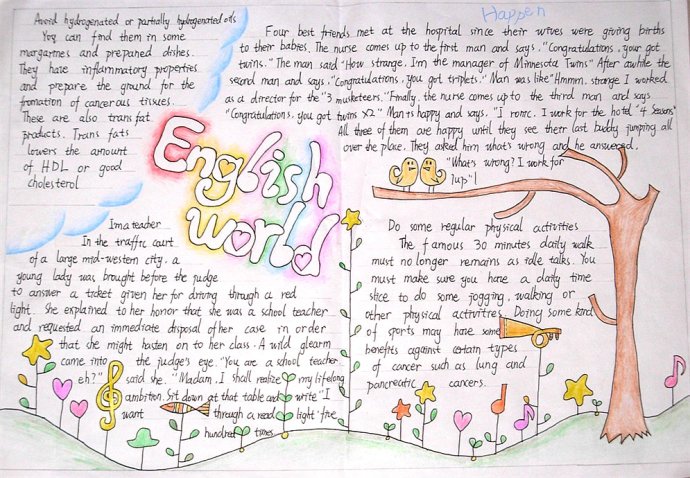 Avoid hydrogenated or partially hydrogenated oils
You can find them in some
margartnes and prepaned dishes.
They have inflammatory properties
and prepare the ground for the
fromation of cancerous tissues.
These are also trans fat
products. Trans fats
lowers the amount
of HDL or good
cholesterol
English
world
Happen
Four best friends met at the hospital since their wives were giving births
to their babies. The nurse comes up to the first man and says. "Congratulations, your got
twins." The man said "How strange. I'm the manager of Minnesota Twins" After awhile the
second man and says. "Congratulations, you got triplets." Man was like "Hmmm, strange I worked
as a director for the "3 musketeers." Fmally, the nurse comes up to the third man and says
"Congratulations, you got twins X2" Man is happy and says. "I ronic. I work for the hotel "4 Seasons"
All three of them are happy until they see therr last buddy jumping all
over the place. They asked him what's wrong and he answered,
"What's wrong? I work for
7up"!
Im a teacher
In the traffic court
of a large mid-western city. a
young lady was brought before the judge
to answer a ticket given her for driving through a red
light. She explained to her honor that she was a school teacher
and requested an immediate disposal of her case in order
that she might hasten on to her class. A wild glearm
came into the judge's eye. "You are a school teacher.
eh?" said she. "Madam. I shall realize my lifelong
ambition. Sit down at that table and write "I
want through a read light 'five
hundred times
Do some regular physical activities
The famous 30 minutes daily walk
must no longer remains as idle talks. You
must make sure you have a daily time
slice to do some jogging, walking or
other physical activitres. Doing some kind
of sports may have some
benefits against certain types
of cancer such as lung and
pancreatic cancers.